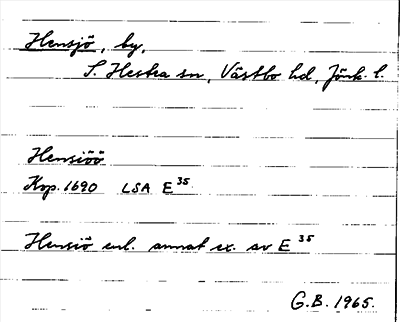 Hensjö, by,
S. Hestra sn, Västbo hd, Jönk. l.
Hensiöö
Kop. 1690 LSA E 35
Hensiö enl. annat ex. av E 35
G.B. 1965.